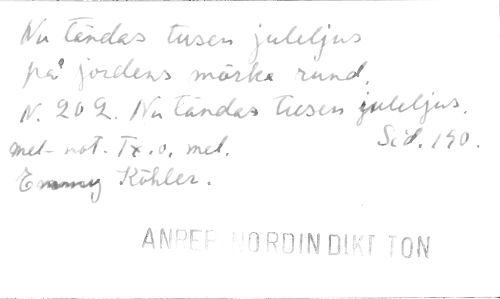 Nu tändas tusen juleljus
på jordens mörka rund.
N. 202. Nu tändas tusen juleljus.
mel-not. Tx. o. mel. Sid. 190.
Emmy Köhler.
NORDIN DIKT TON